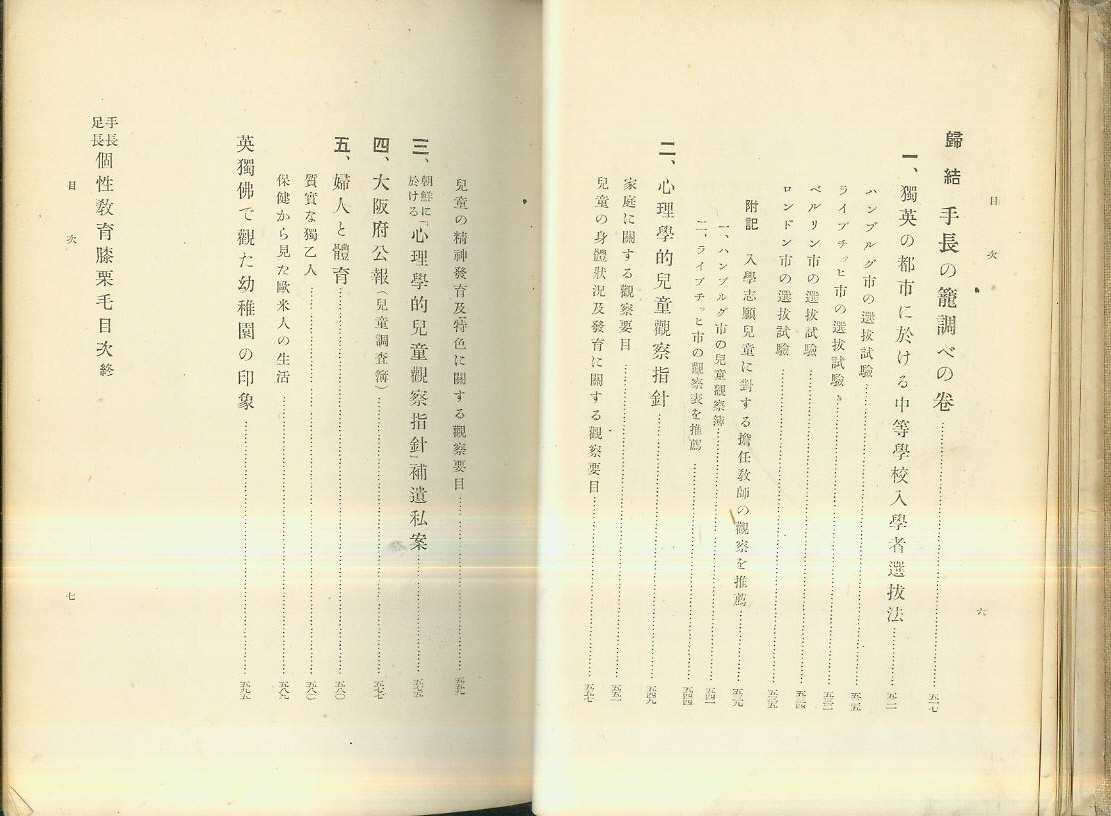 目次
六
歸結 手長の籠調べの卷
一、獨英の都市に於ける中等學校入學者選拔法
ハンブルグ市の選拔試驗
ライプチッヒ市の選拔試驗
ベルリン市の選拔試驗
ロンドン市の選拔試驗
附記 入學志願兒童に對する擔任教師の觀察を推薦
一、ハンブルグ市の兒童觀察簿
二、ライプチッヒ市の觀察表を推薦
二、心理學的兒童觀察指針
家庭に關する觀察要目
兒童の身體狀況及發育に關する觀察要目
兒童の精神發育及特色に關する觀察要目
三、朝鮮に於ける「心理學的兒童觀察指針」補遺私案
四、大阪府公報(兒童調査簿)
五、婦人と體育……五八〇
質實な獨乙人……五八〇
保健から見た歐米人の生活
英獨佛で觀た幼稚園の印象
手長足長個性敎育膝栗毛目次終
目次
七